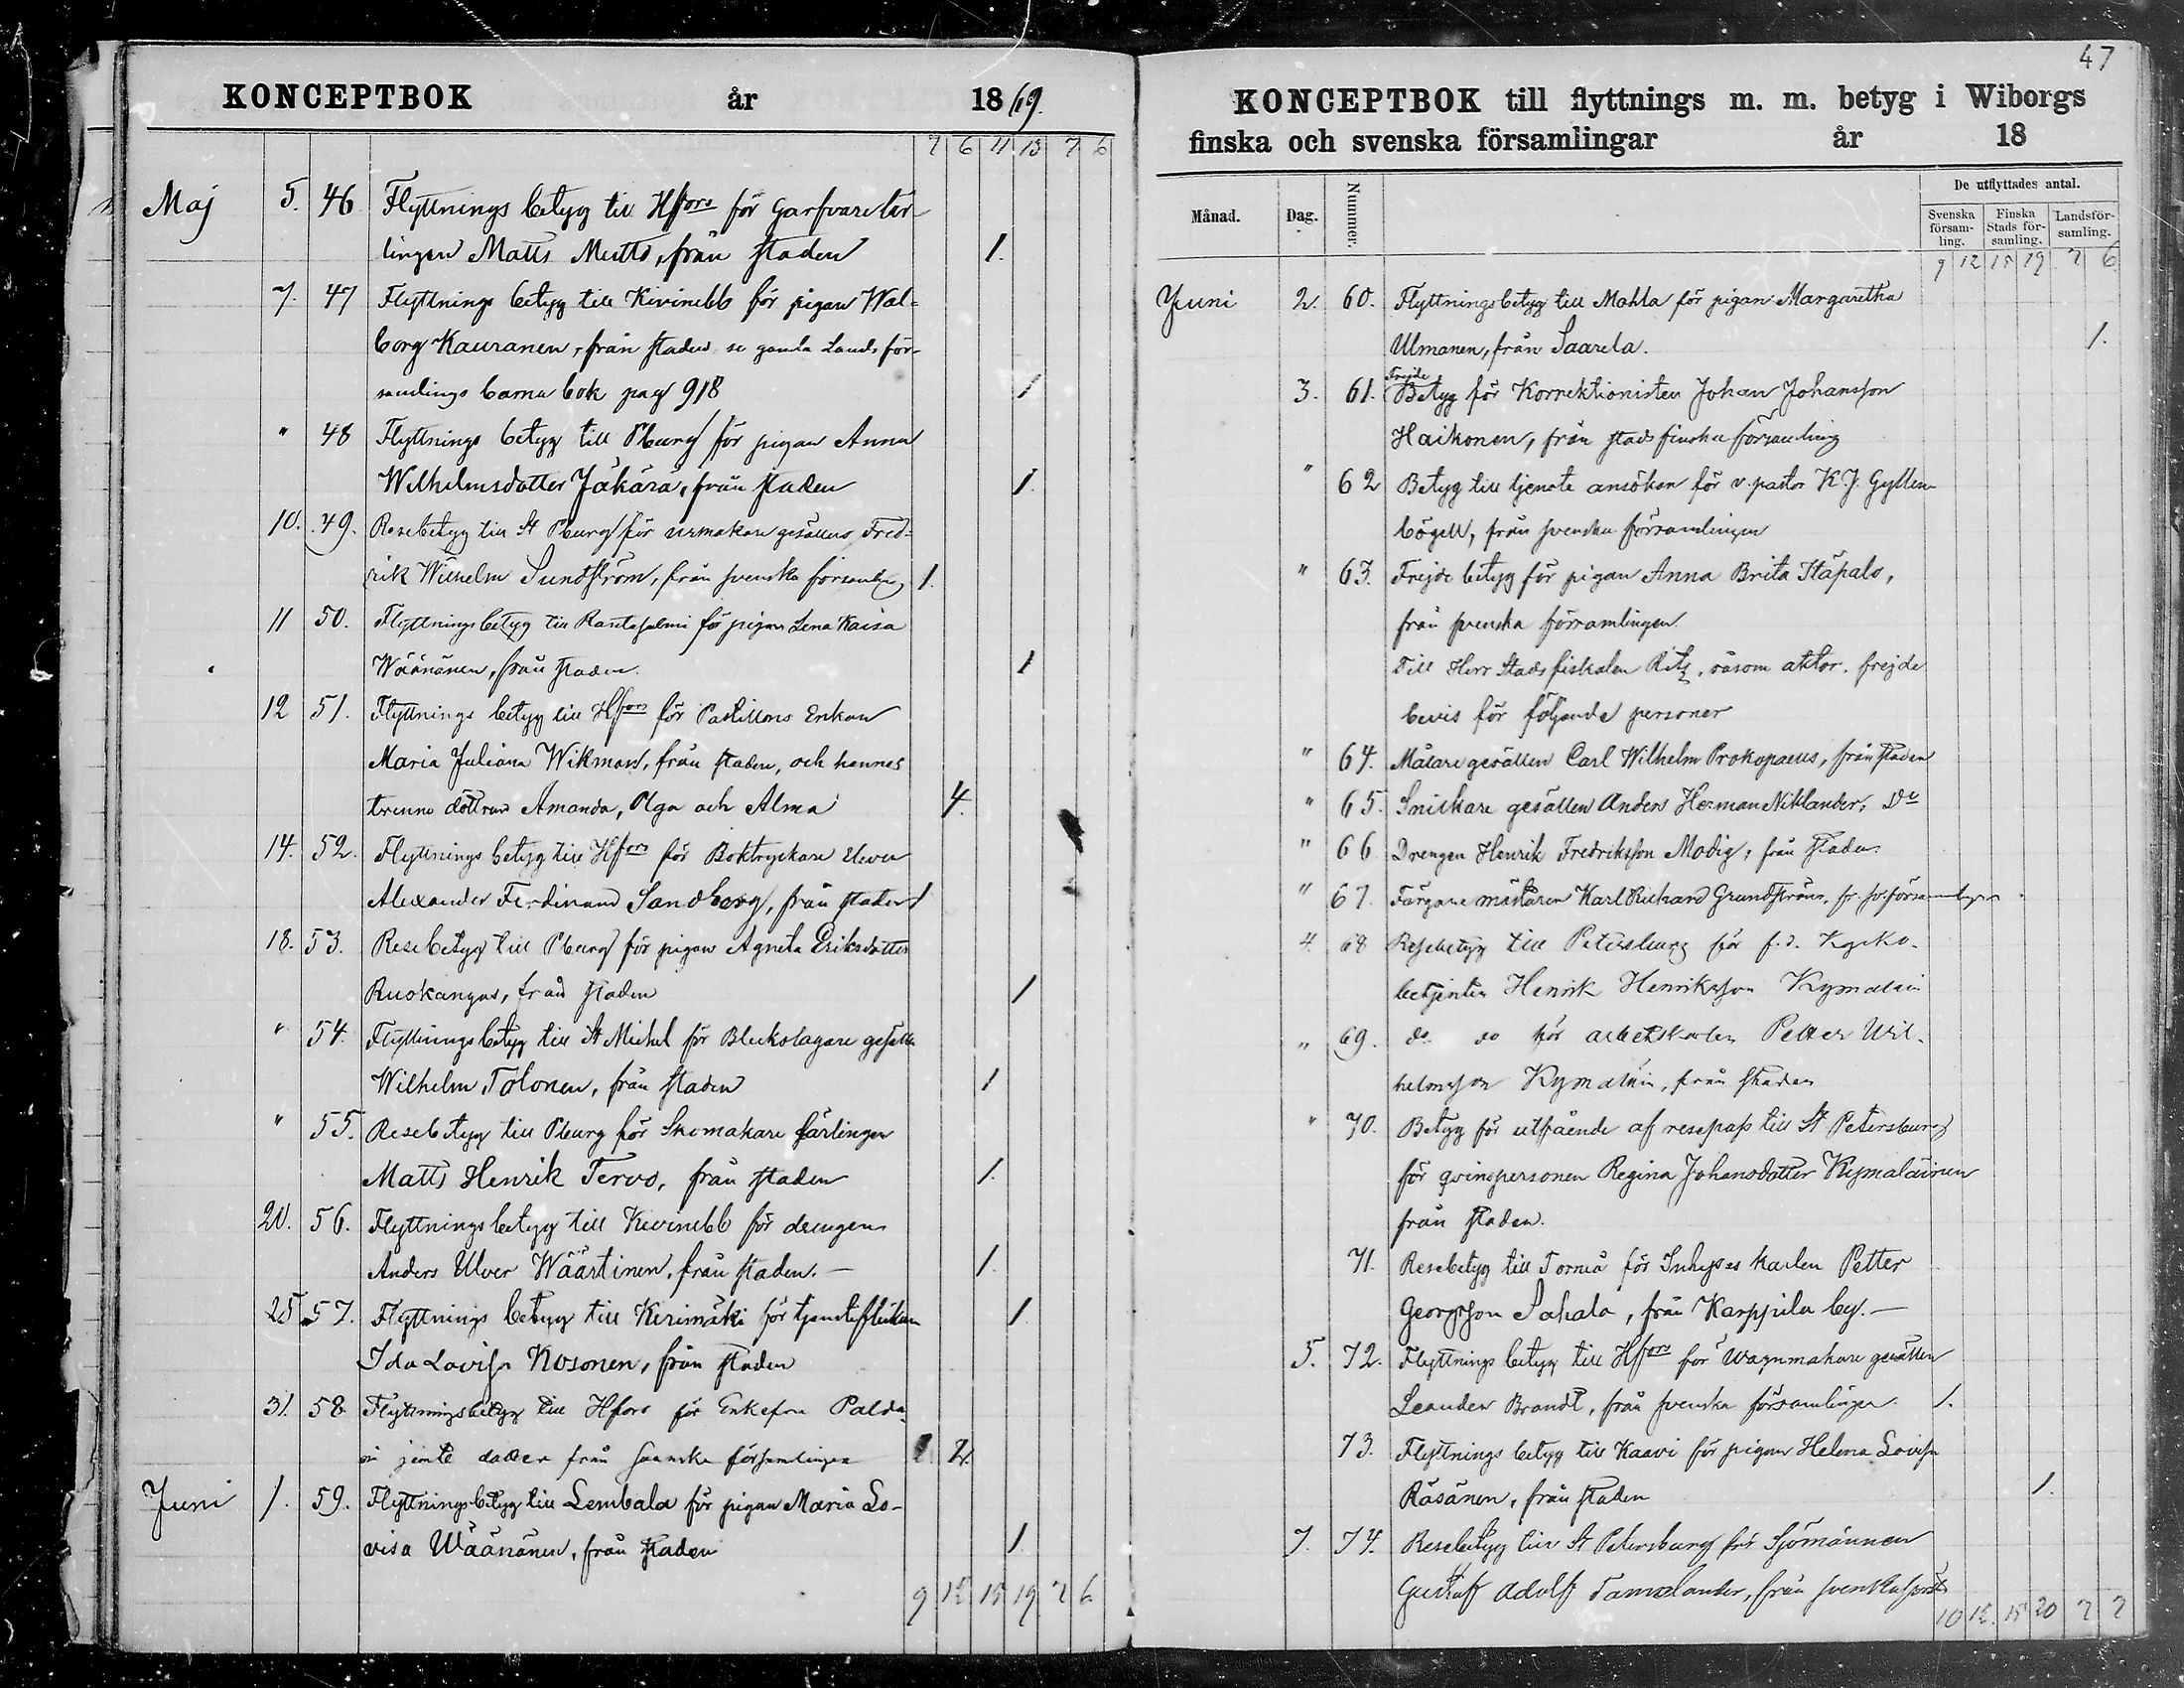 KONCEPTBOK år 1869.
7 6 11 13 7 6
Maj 5. 46 Flyttnings betyg till Hfors för Garfvare lär-
lingen Matts Mutts, från staden 1.
7. 47 Flyttnings betyg till Kivinebb för pigan Wal=
borg Kauranen, från staden se gamla Lands för-
samlings barna bok pag 918 1
" 48 Flyttnings betyg till Pburg för pigan Anna
Wilhelmsdotter Jäkärä, från staden 1.
10. 49. Resebetyg till St Pburg för urmakare gesällen Fred=
rik Wilhelm Sundström, från svenska församling 1.
11 50. Flyttningsbetyg till Rantasalmi för pigan Lena Kaisa
Väänänen, från staden. 1
12 51. Flyttnings betyg till Hfors för Postillons Enkan
Maria Juliana Wikman, från staden, och hennes
trenne döttrar Amanda, Olga och Alma 4.
14. 52. Flyttnings betyg till Hfors för Boktryckare Eleven
Alexander Ferdinand Sandberg, från staden 1
18. 53. Resebetyg till Pburg för pigan Agneta Eriksdotter
Ruokangas, från staden 1
" 54. Flyttningsbetyg till St Michel för Bleckslagare gesällen
Wilhelm Tolonen, från staden 1
" 55. Resebetyg till Pburg för Skomakare lärlingen
Matts Henrik Tervo, från staden 1.
20. 56. Flyttningsbetyg till Kivinebb för drengen
Anders Ulver Wäärtinen, från staden. — 1.
25. 57. Flyttnings betyg till Kerimäki för tjensteflickan 1.
Ida Lovisa Kosonen, från staden
31. 58. Flyttningsbetyg till Hfors för Enkefru
jemte dotter från svenska församlingen 2.
Juni 1. 59. Flyttningsbetyg till Lembala för pigan Maria Lo-
visa Wäänänen, från staden 1
9 12 15 19 7 6
47
KONCEPTBOK till flyttnings m. m. betyg i Wiborgs
finska och svenska församlingar år 18
Månad. Dag. Nummer. De utflyttades antal.
Svenska församling. Finska Stads församling. Landsförsamling.
9 12 15 19 7 6
Juni 2. 60. Flyttningsbetyg till Mohla för pigan Margaretha
Ulmanen, från Saarela. 1.
Frejde
3. 61. Betyg för Korrektionisten Johan Johansson
Haikonen, från stads finska församling
" 62 Betyg till tjenste ansökan för v. pastor K J. Gyllen-
bögell, från svenska församlingen
" 63. Frejde betyg för pigan Anna Brita Stäpalo,
från svenska församlingen
Till Herr Stadsfiskalen Ritz, såsom aktor, frejde
bevis för följande personer
" 64. Målare gesällen Carl Wilhelm Prokopaeus, från staden
" 65. Snickare gesällen Anders Herman Niklander, Do
" 66 Drengen Henrik Fredriksson Modig, från staden
" 67. Färgare mästaren Karl Richard Grundström, fr. sv. församlingen
4. 68 Resebetyg till Petersburg för f. d.
betjenten Henrik Henriksson Kymäläin
" 69. do do för arbetskarlen Petter Wil-
helmsson Kymäläin, från staden
" 70. Betyg för utfående af resepass till St Petersburg
för qvinspersonen Regina Johansdotter Kymäläinen
från staden.
71. Resebetyg till Torneå för Inhyses karlen Petter
Georgsson Sahala, från Karppila by. —
5. 72. Flyttnings betyg till Hfors för Wagnmakare gesällen
Leander Brandt, från svenska församlingen. 1.
73. Flyttnings betyg till Kaavi för pigan Helena Lovisa
Räsänen, från staden 1.
7. 74. Resebetyg till St Petersburg för Sjömannen
Gustaf Adolf Tamelander, från svenska förs.
10 12 15 20 7 7